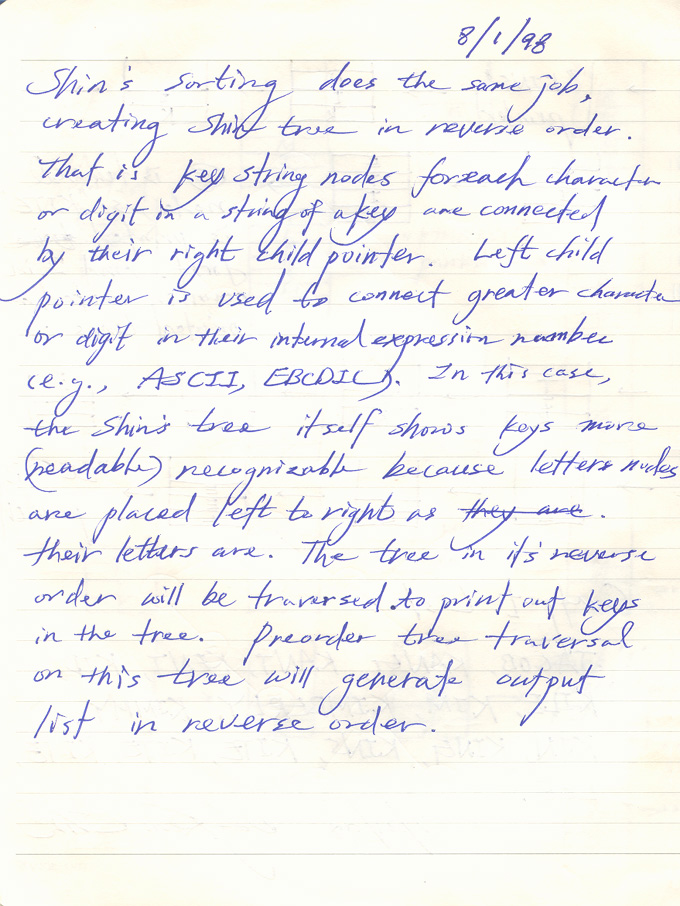 8/1/98
Shin's sorting does the same job,
creating Shin tree in reverse order.
That is key string nodes for each character
or digit in a string of a key are connected
by their right child pointer. Left child
pointer is used to connect greater character
or digit in their internal expression number
(e.g., ASCII, EBCDIC). In this case,
the Shin's tree itself shows keys more
(readable) recognizable because letters nodes
are placed left to right as they are.
their letters are. The tree in it's reverse
order will be traversed to print out keys
in the tree. Preorder tree traversal
on this tree will generate output
list in reverse order.